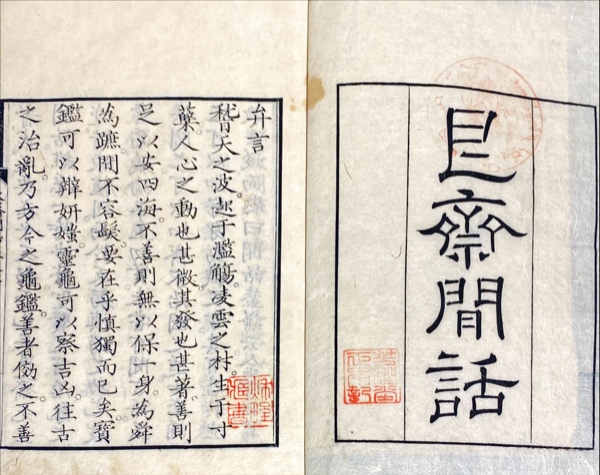 艮齋閒話
弁言
稽天之波。起于濫觴。凌雲之材。生于寸
蘖。人心之動也甚微。其發也甚著。善則
足以安四海。不善則無以保一身。為舜
為蹠間不容髮。要在乎慎獨而已矣。寳
鑑可以辯妍媸。靈龜可以察吉凶。往古
之治亂。乃方今之龜鑑。善者傚之。不善